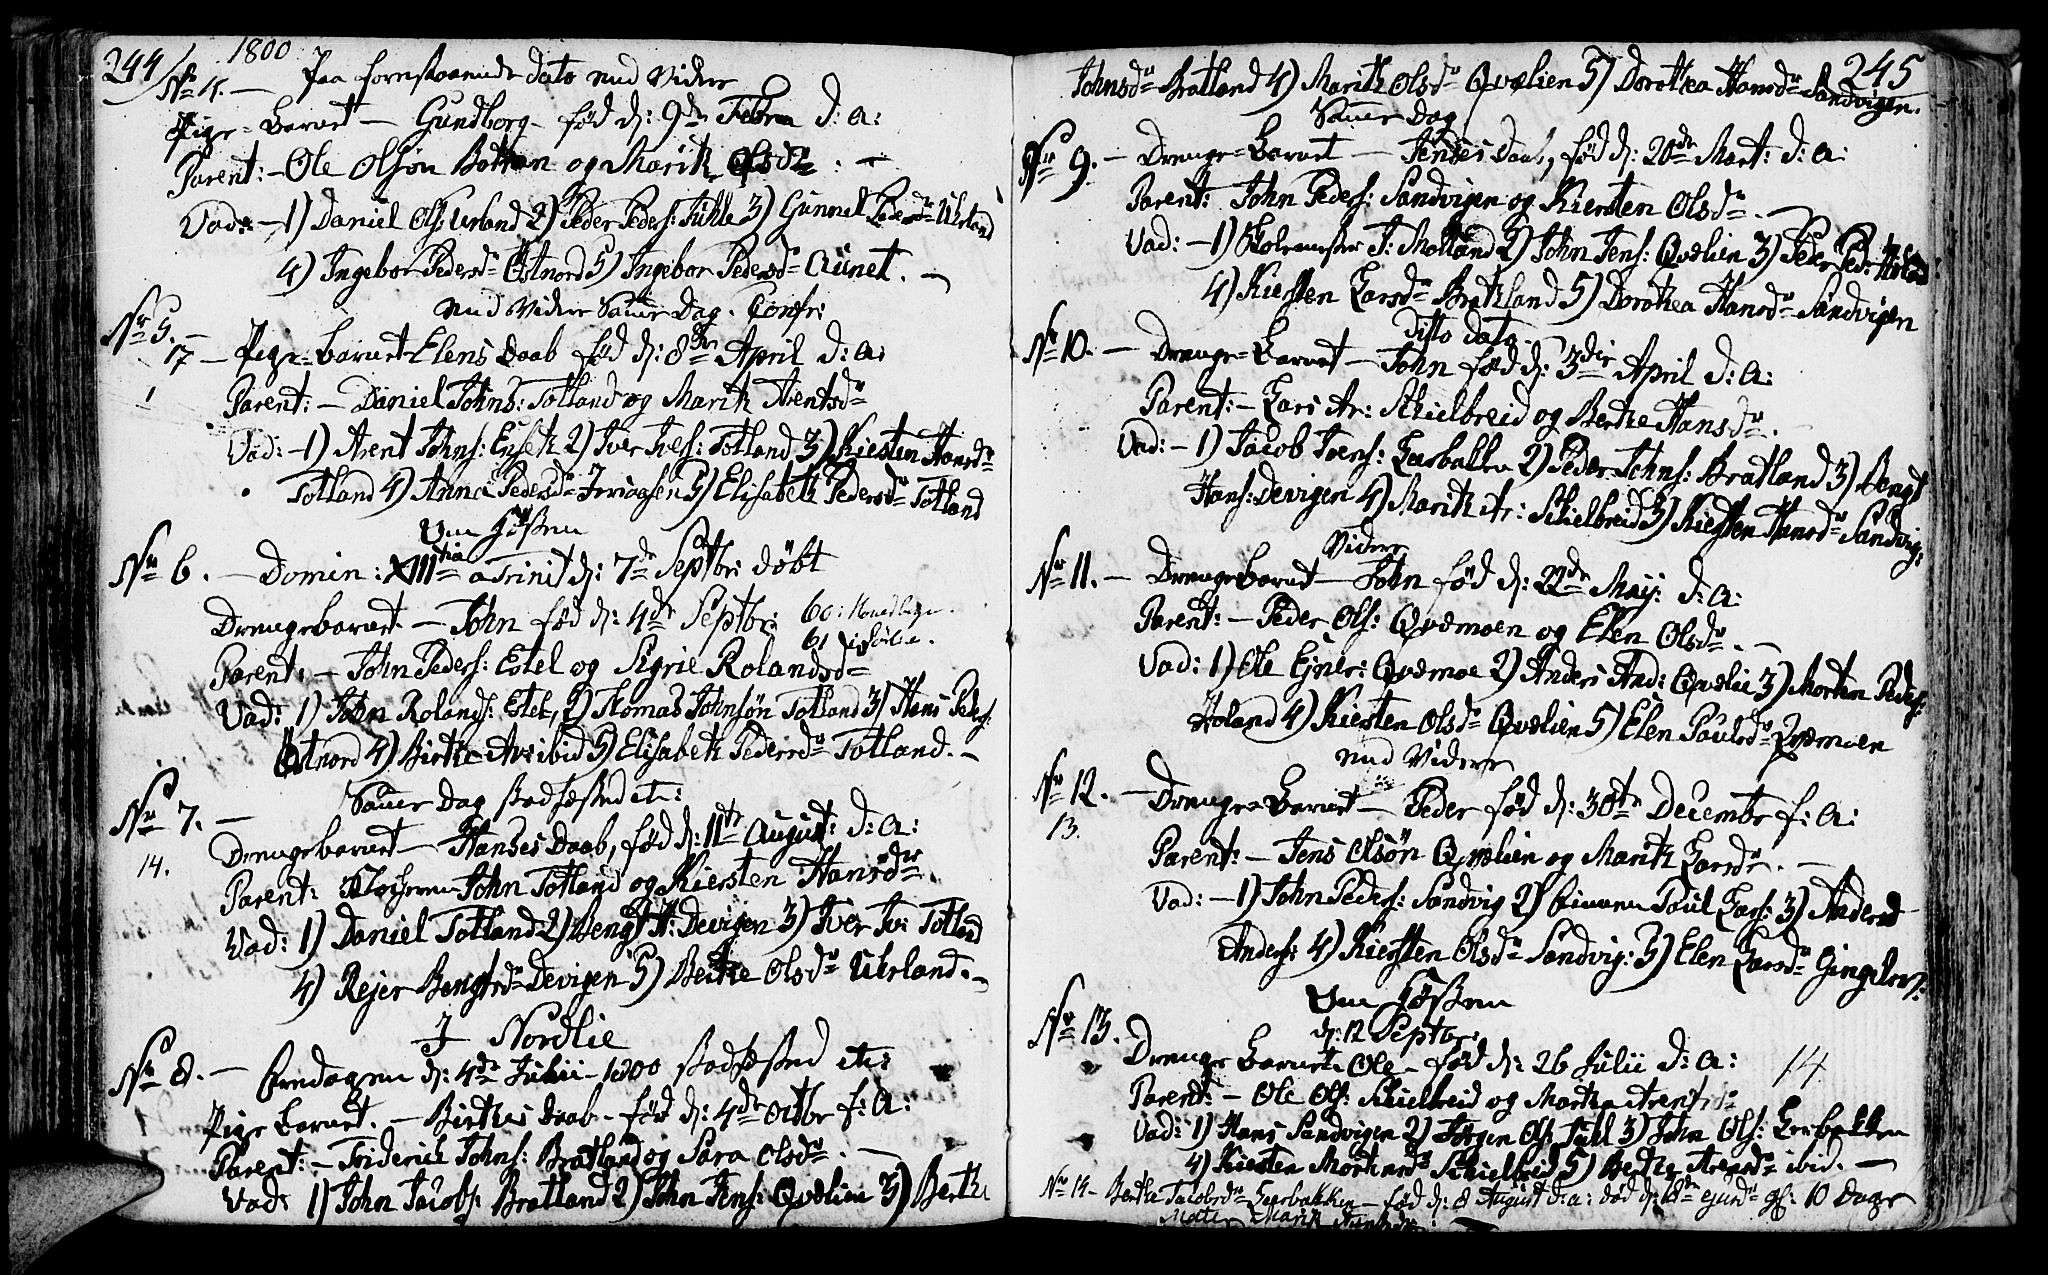 244 / 1800
No 4. — Paa forestaaende dato med Vider
Pige-Barnet — Gundborg — fød d: 9de Febru d: a:
Parent: — Ole Olsøn Botten og Marit Olsdr. —
Vad: — 1) Daniel Ols: Urland 2) Peder Peders: Tuhle 3) Gunnel Pedersdr Uhrland
4) Ingebor Pedersdr Østnord 5) Ingebor Pedersdr Aunet. —
med Vider Samer Dag. Confr:
No 5. —
17 — Pige-barnet Elens Daab fød d: 8de April d: a:
1 Parent: — Daniel Johns: Totland og Marit Arentsdr
Vad: — 1) Arent Johns: 2) Iver Ives: Totland 3) Kiersten Hansdr
Totland 4) Anna Pedersdr 5) Elisabeth Pedersdr Totland
No 6. — Domin: XIIItia a Trinit d: 7de Septbr: døbt
Drengebarnet — John fød d: 4de Septbr: 60:
61
Parent: — John Peders: Estel og Sigrie Rolandsdr
Vad: 1) John Rolands: Estel, 2) Thomas Johnsøn Totland 3) Hans Peders:
Østnord 4) Birthe ibid 5) Elisabeth Pedersdr Totland. —
Samer Dag stadfæsted etc:
No 7. —
14. Drengebarnet — Hanses Daab, fød d: 11te August: d: a:
Parent: John Totland og Kiersten Hansdr
Vad: 1) Daniel Totland 2) Bengt H: Devigen 3) Iver Iv: Totland
4) Rejer Bengtsdr Devigen 5) Berthe Olsdr Uhrland. —
I Nordlie
No 8. — Fredagen d: 4de Julii — 1800 stadfæsted etc:
Pige Barnet. — Birthes Daab — fød d: 4de Octbr f: a:
Parent: — Friderich Johns: Bratland og Sara Olsdr. —
Vad: 1) John Jacobs: Bratland 2) John Jens: Qvælien 3) Berthe
245
Johnsdr Bratland 4) Marith Olsdr Qvælien 5) Dorothea Hansdr Sandvigen.
Samer Dag
No 9. — Drenge-Barnet — Jenses Daab, fød d: 20de Mart: d: a:
Parent: John Peders: Sandvigen og Kiersten Olsdr. —
Vad: — 1) J: Motland 2) John Jens: Qvælien 3) Peder Ped:
4) Kiersten Larsdr Bratland 5) Dorothea Hansdr Sandvigen
Ditto dato
No 10. — Drenge-Barnet — John fød d: 3die April d: a:
Parent: — Lars Ar: Skielbreid og Berthe Hansdr.
Vad: — 1) Jacob Jens: 2) Peder Johns: Bratland 3) Bengt
Hans: Devigen 4) Marith Ar: Skielbreid 5) Kiersten Hansdr Sandvig:
Vider
No 11. — Drengebarnet — John fød d: 22de Maij: d: a:
Parent: — Peder Ols: Qvæmoen og Elen Olsdr. —
Vad: 1) Ole Ejner: Qvæmoe 2) Anders And: Qvælie 3) Morten Peders:
Holand 4) Kiersten Olsdr Qvælien 5) Elen Paulsdr Qvæmoen
med Videre
No 12. — Drenge-Barnet — Peder fød d: 30te Decembr f: a:
13.
Parent: — Jens Olsøn Qvælien og Marith Larsdr. —
Vad: — 1) John Peders: Sandvig 2) Paul Lars: 3) Anders
Anders: 4) Kiersten Olsdr Sandvig: 5) Elen Larsdr
d: 12 Septbr:
No 13.
Drenge Barnet Ole — fød d: 26 Julii d: a: 14
Parent: — Ole Ols: Skielbreid og Martha Arentsdr
Vad: 1) Hans Sandvigen 2) Jørgen Ols: Tuhl 3) John Ols: Leerbakken
4) Kiersten Mortensdr Skielbreid 5) Berthe Arensdr ibid. —
No 14 — Berthe Jacobsdr Leerbakken — fød d: 8 August d: a: død d: 18de ejusd: gl: 10 Dage
Mater Marit